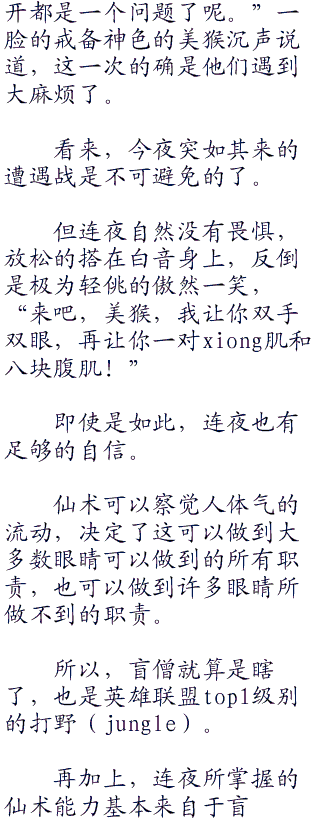 开都是一个问题了呢。”一
脸的戒备神色的美猴沉声说
道，这一次的确是他们遇到
大麻烦了。
看来，今夜突如其来的
遭遇战是不可避免的了。
但连夜自然没有畏惧，
放松的搭在白音身上，反倒
是极为轻佻的傲然一笑，
“来吧，美猴，我让你双手
双眼，再让你一对xiong肌和
八块腹肌！”
即使是如此，连夜也有
足够的自信。
仙术可以察觉人体气的
流动，决定了这可以做到大
多数眼睛可以做到的所有职
责，也可以做到许多眼睛所
做不到的职责。
所以，盲僧就算是瞎
了，也是英雄联盟top1级别
的打野（jungle）。
再加上，连夜所掌握的
仙术能力基本来自于盲